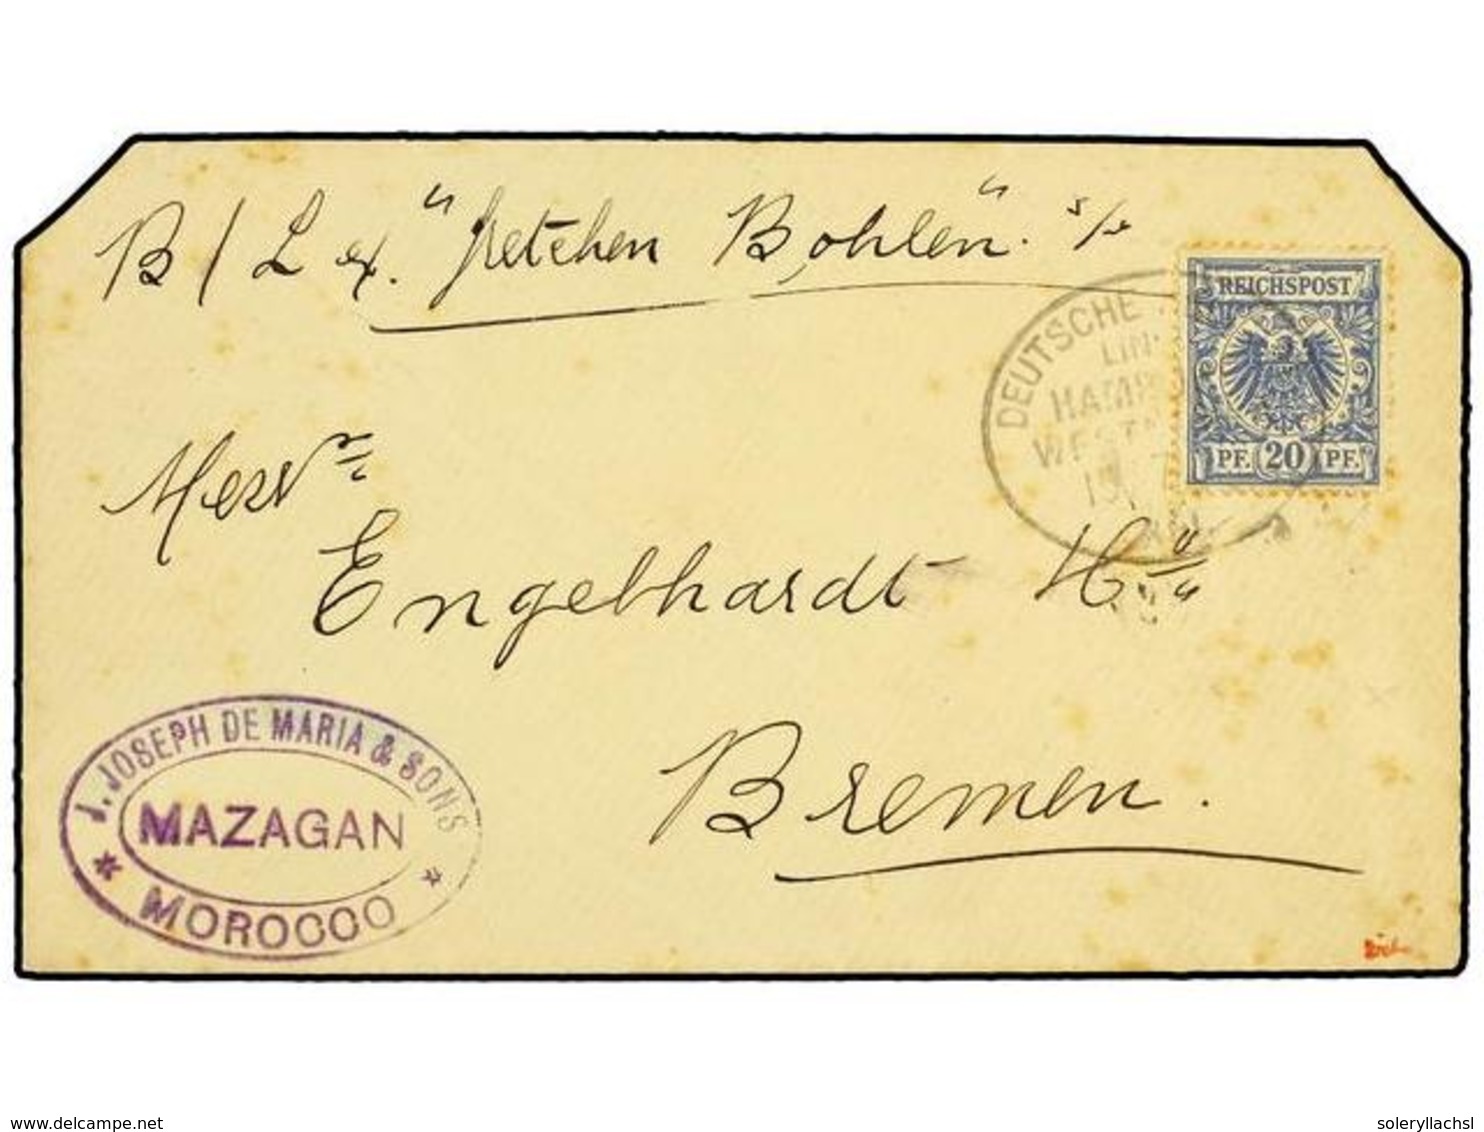 B/L ex. "Gretchen Bohlen" s/s
REICHSPOST
PF. 20 PF.
DEUTSCHE
LIN
HAM
WEST
Messrs
Engelhardt
Bremen.
J. JOSEPH DE MARIA & SONS
MAZAGAN
* MOROCCO *
delcampe.net
soleryllachsl